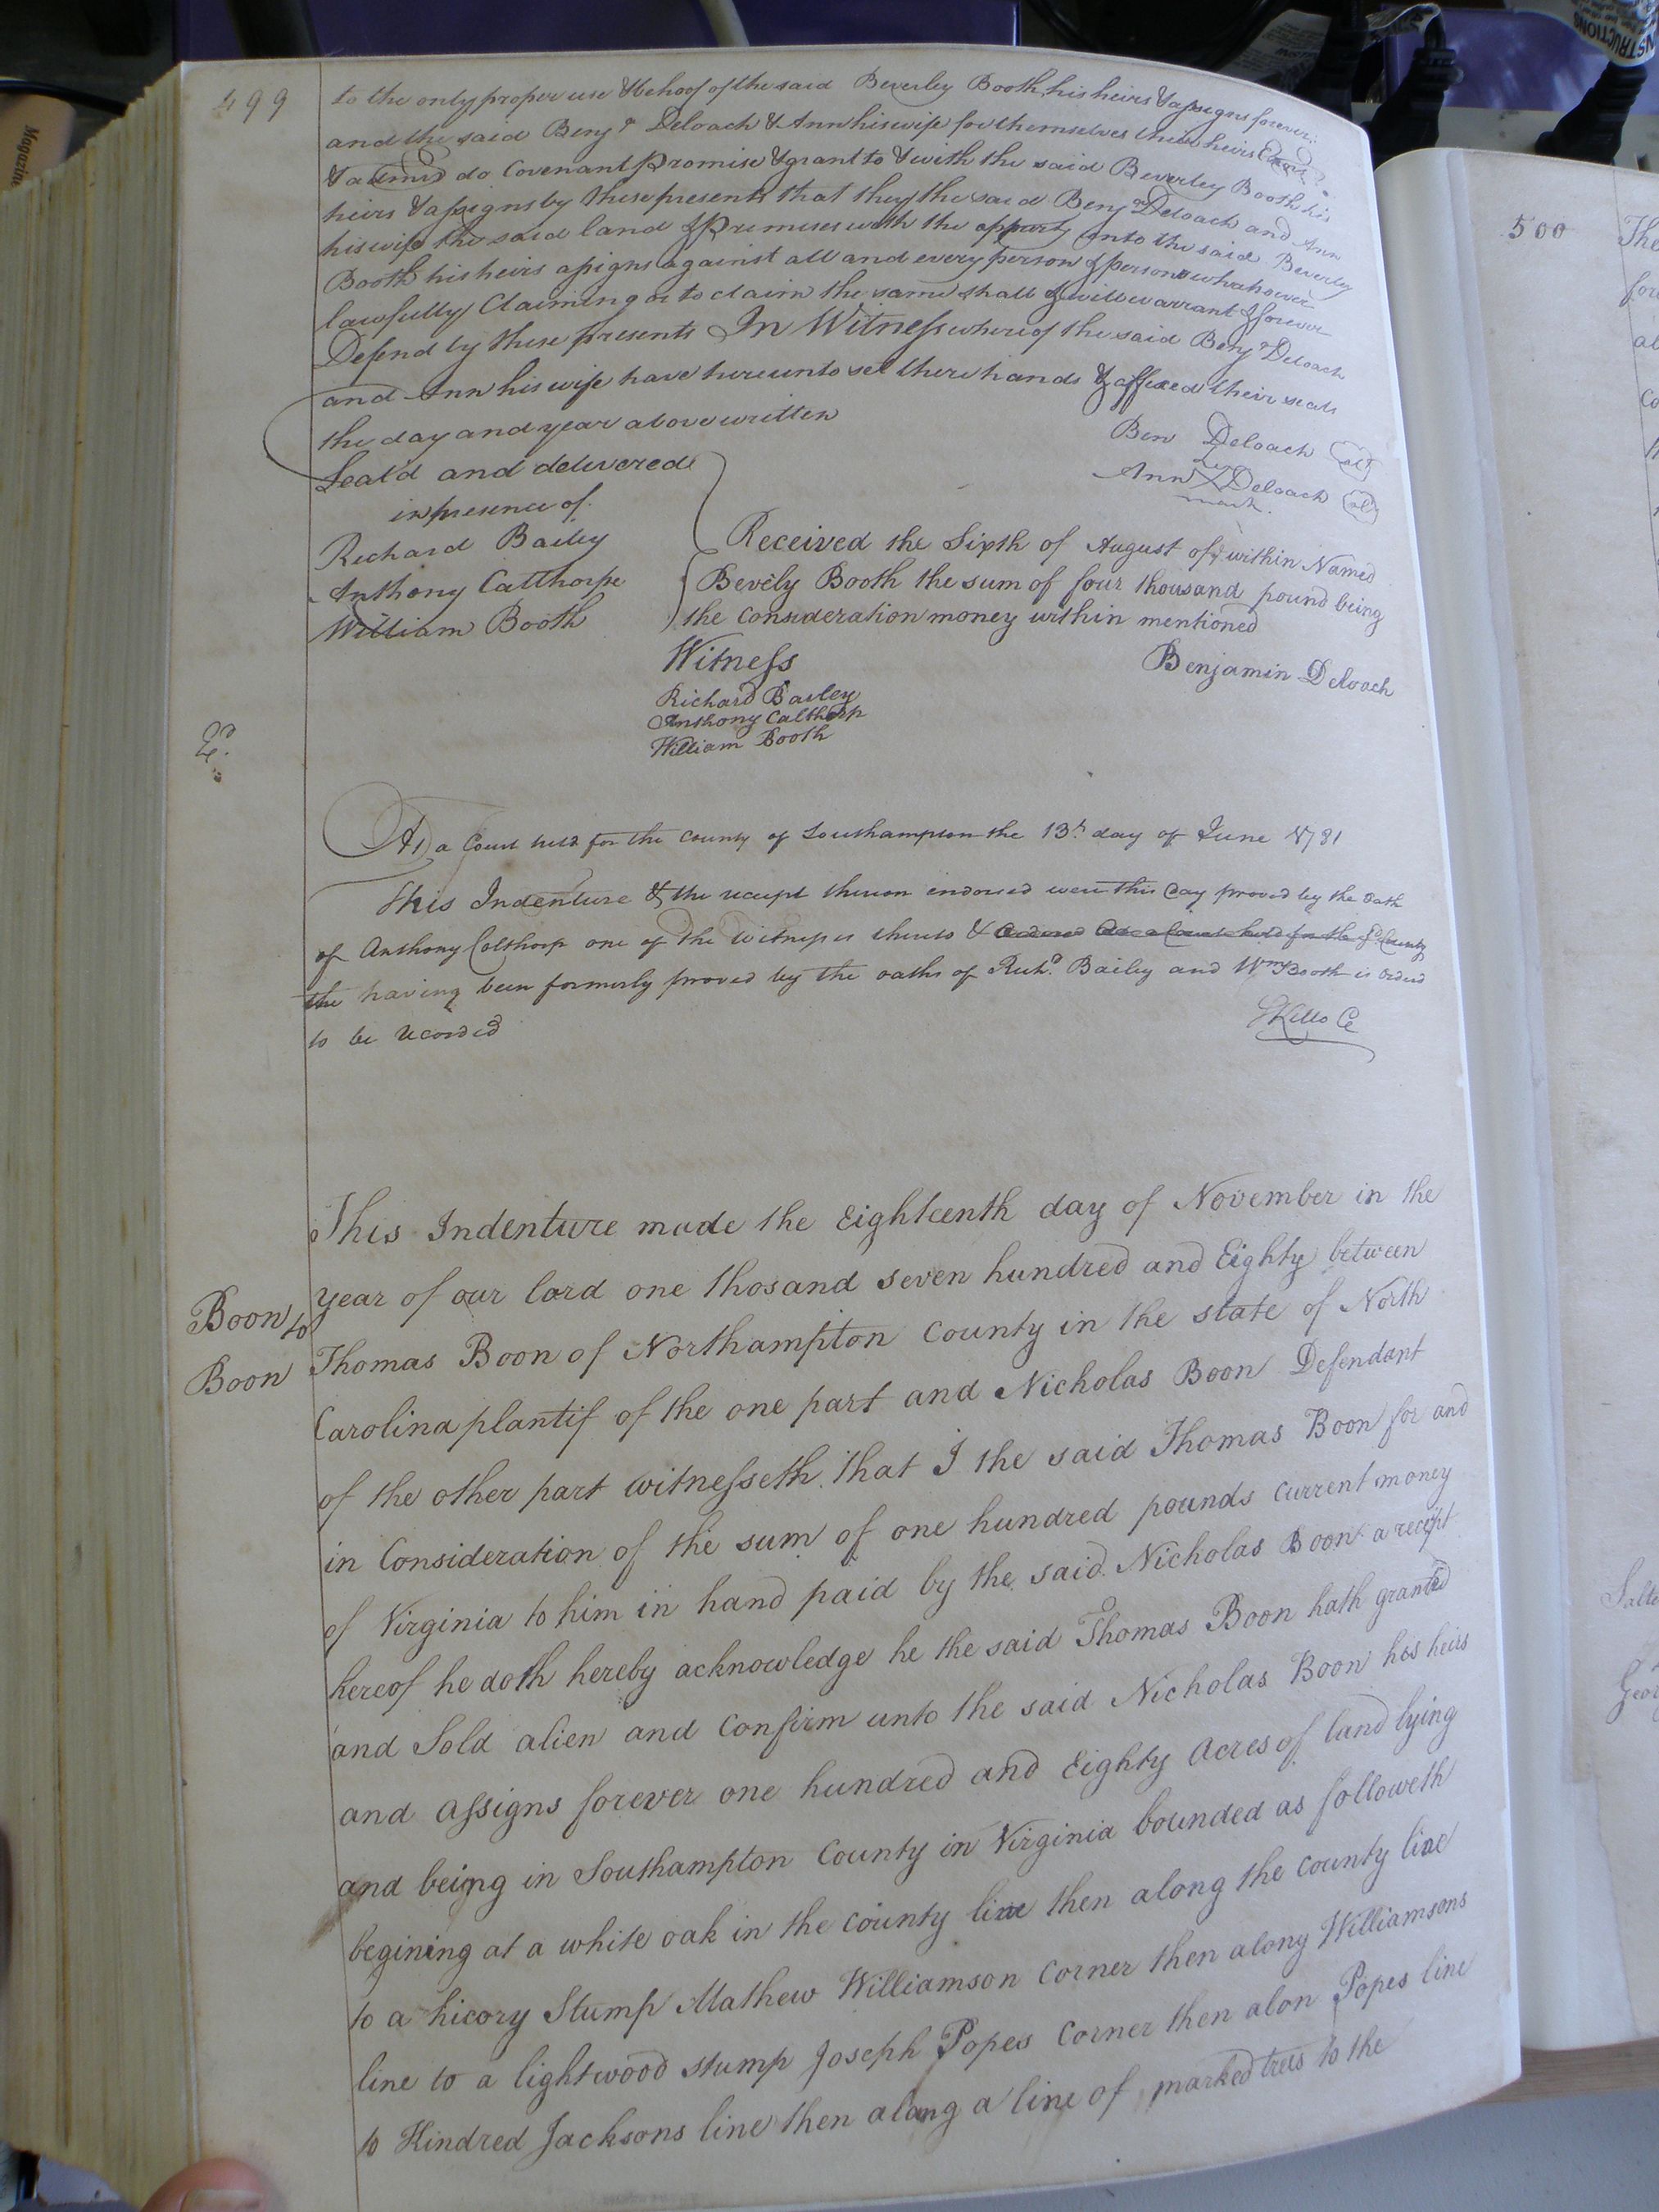 499
to the only proper use & behoof of the said Beverley Booth his heirs & assigns forever
and the said Benj.ª Deloach & Ann his wife for themselves their heirs
& admrs do Covenant promise & grant to & with the said Beverley Booth his
heirs & assigns by these presents that they the said Benj.ª Deloach and Ann
his wife the said land & premises with the appurts unto the said Beverley
Booth his heirs assigns against all and every person & persons whatsoever
lawfully Claiming or to claim the same shall & will warrant & forever
Defend by these presents In Witness whereof the said Benj.ª Deloach
and Ann his wife have hereunto set there hands & affixed their seals
the day and year above written
Ben Deloach
Seal'd and delivered
her
Ann X Deloach
mark
in presence of
Richard Bailey
Anthony Calthorpe
William Booth
Received the Sixth of August of within Named
Bevely Booth the sum of four thousand pound being
the Consideration money within mentioned
Witness
Benjamin Deloach
Richard Bailey
Anthony Calthorp
William Booth
At a Court held for the County of Southampton the 13.th day of June 1781
This Indenture & the receipt thereon endorsed were this day proved by the oath
of Anthony Calthorp one of the Witnesses thereto & Ordered At a Court held for the sd County
the having been formerly proved by the oaths of Richd. Bailey and Wm Booth is ordered
to be recorded
SKello CC
Boon to
Boon
This Indenture made the Eighteenth day of November in the
year of our lord one thosand seven hundred and Eighty between
Thomas Boon of Northampton County in the state of North
Carolina plantif of the one part and Nicholas Boon Defendant
of the other part witnesseth that I the said Thomas Boon for and
in Consideration of the sum of one hundred pounds current money
of Virginia to him in hand paid by the said Nicholas Boon a recipt
hereof he doth hereby acknowledge he the said Thomas Boon hath granted
and Sold alien and Confirm unto the said Nicholas Boon his heirs
and assigns forever one hundred and Eighty acres of land lying
and being in Southampton County in Virginia bounded as followeth
begining at a white oak in the county line then along the county line
to a hicory Stump Mathew Williamson Corner then along Williamsons
line to a lightwood stump Joseph Popes Corner then alon Popes line
to Kindred Jacksons line then along a line of marked trees to the
500
The
Magazine